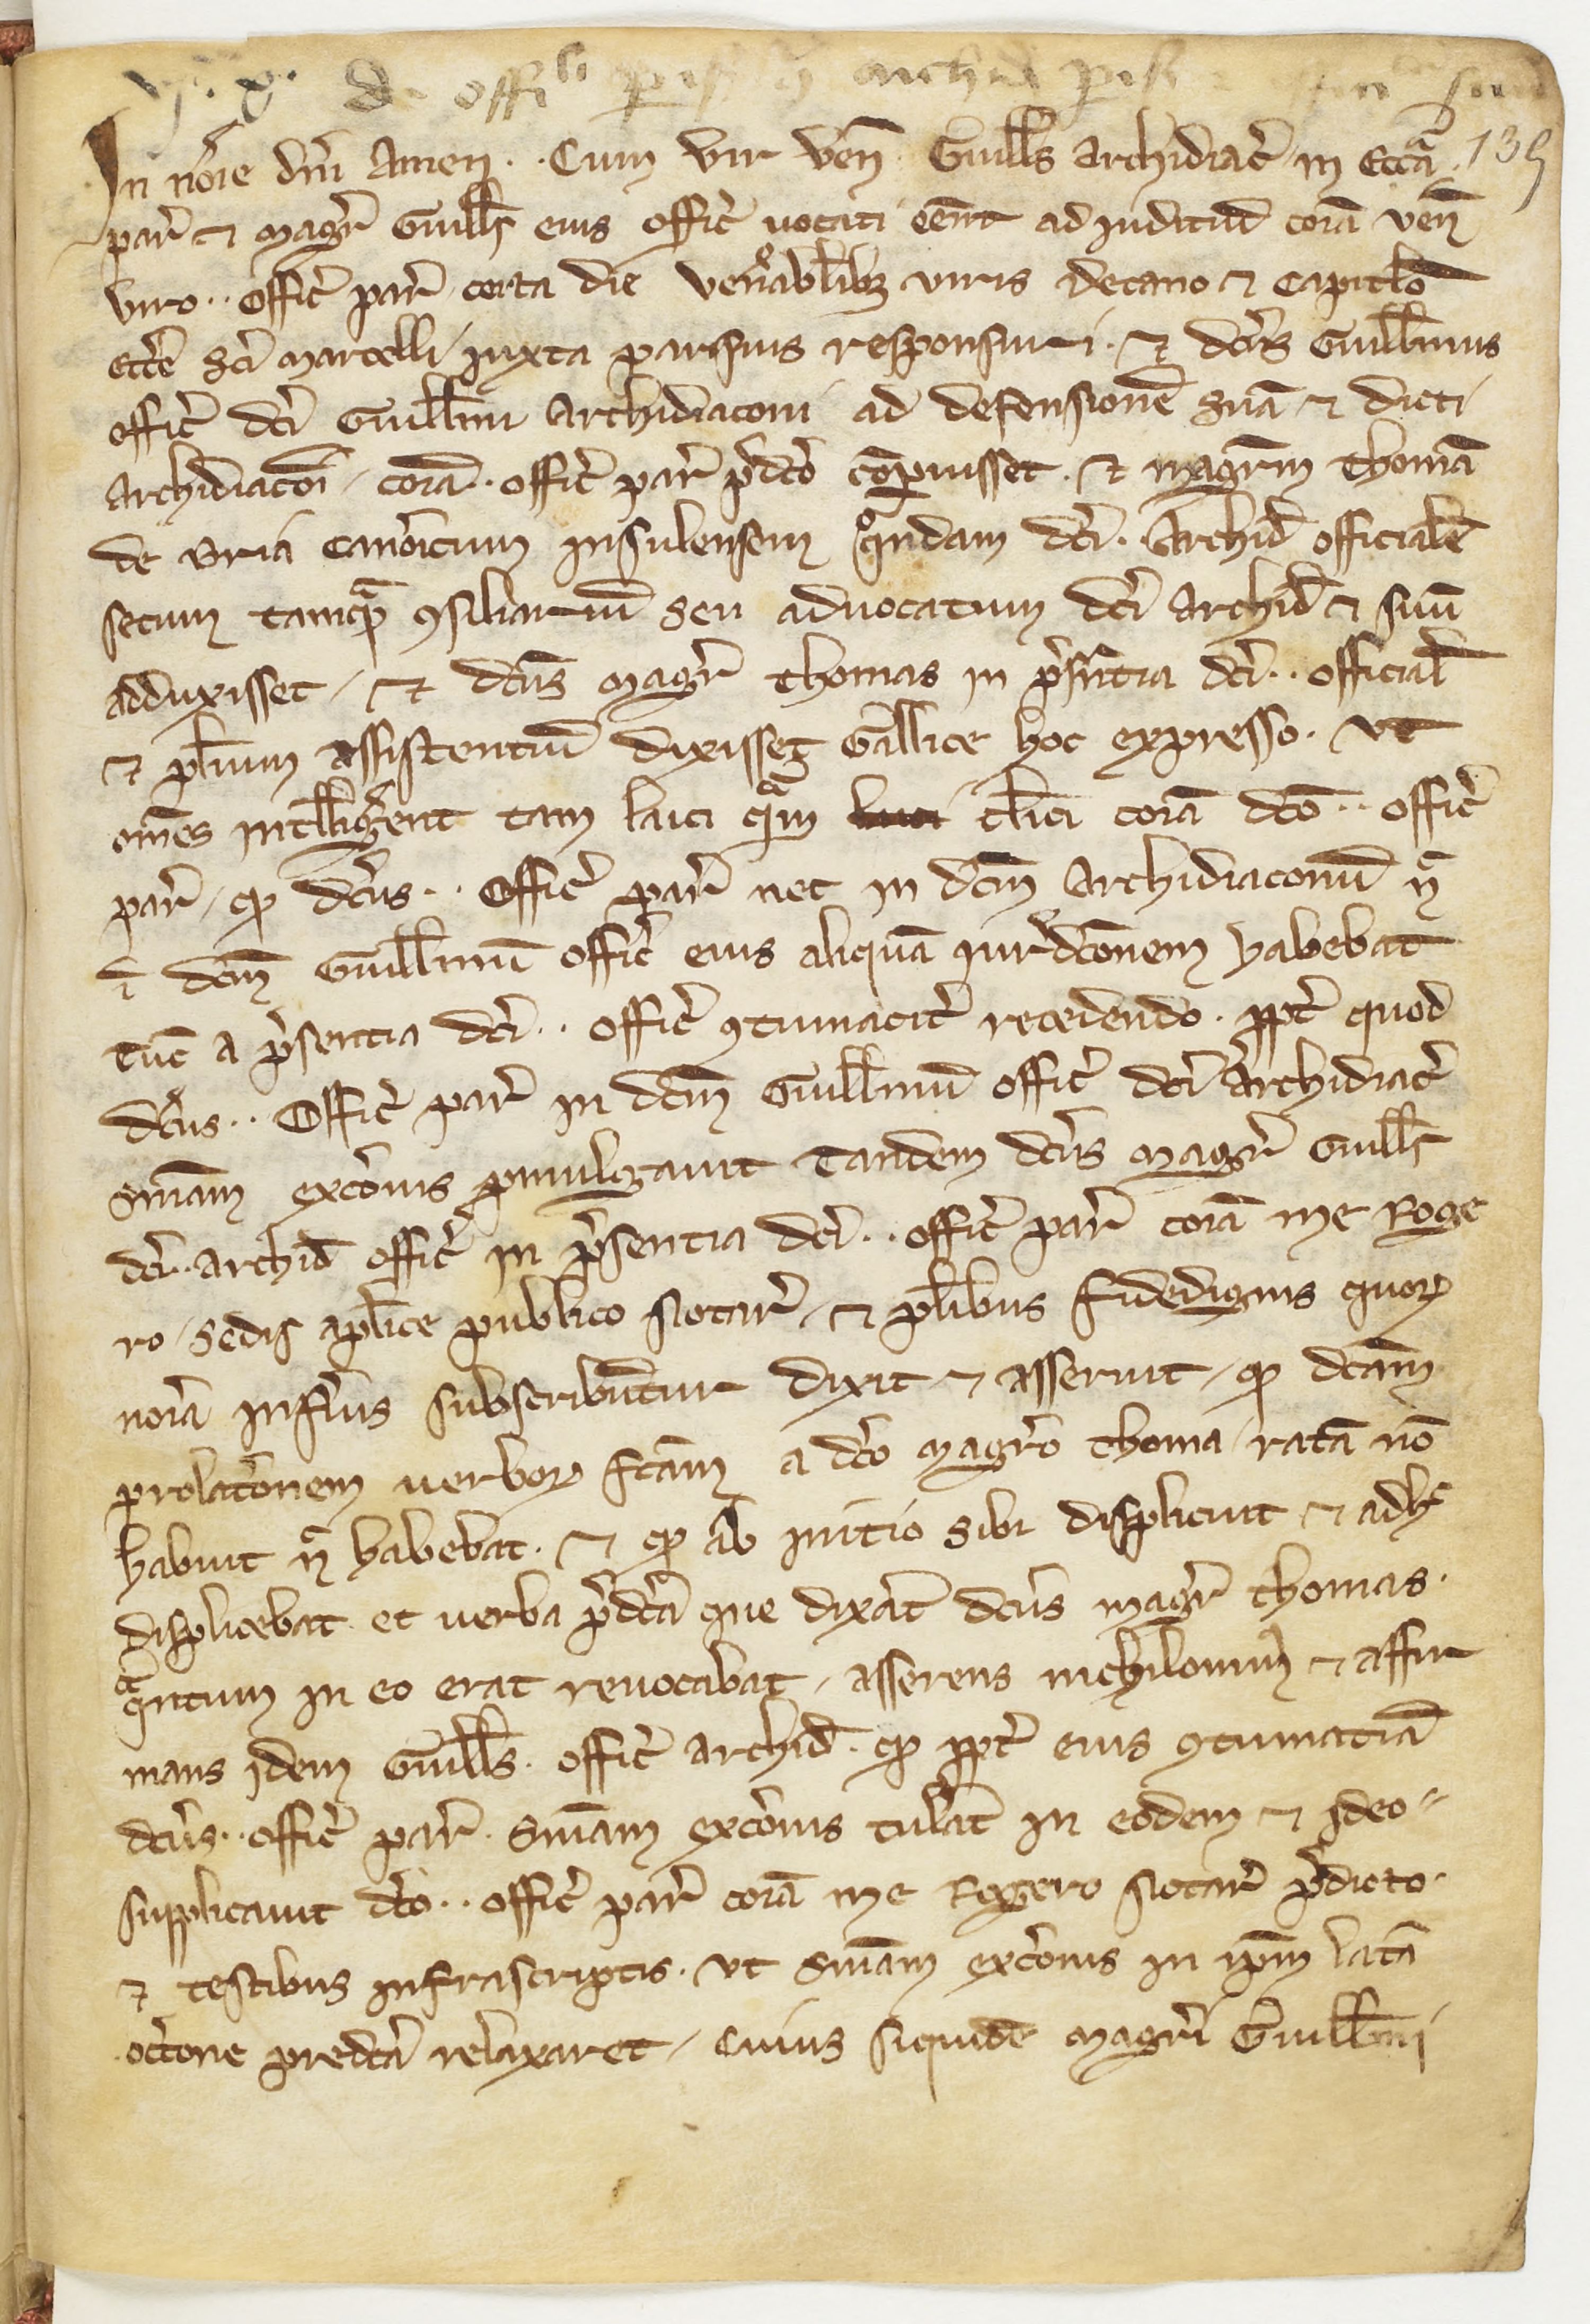 de offi
135
In no͞ie dn͞i Amen . . Cum vir ven͞ Guill͞s Archidiac͛ in Ecc͞a
par͛ ⁊ mag͛r Guill͞s eius offic͛ uocati ee͞nt ad iuditiu͞ cora͞ ven͞
viro . . Offic͛ par͛ certa die Ven͛abl͞ibꝫ viris decano ⁊ Capitl͞o
Ecc͞e Sc͞i Marcelli iuxta parisius responsuri . ⁊ dc͞us Guill͞mus
offic͛ dc͞i Guill͞mi Archidiaconi ad defensione͞ sua͞ ⁊ dicti
Archidiaco͞i / cora͞ . . offic͛ par͛ p͛dc͞o co͞paruisset . ⁊ mag͛rm thoma͞
de Uria cano͞icum insulensem q͛ndam dc͞i . Archid͞ officiale͞
secum tamq͛ꝫ ꝯsiliariu͞ seu aduocatum dc͞i Archid͞ ⁊ suu͞
adduxisset / ⁊ dc͞us mag͛r thomas in p͛sn͞tia dc͞i . . official͞
⁊ pl͞ium assistentiu͞ dixisset Gallice hoc expresso . vt
om͞es intell͞ig͛ent tam laici q͛m cl͞ici cora͞ dc͞o . . offic͛
par͛ / ꝙ dc͞us . . Offic͛ par͛ nec in dc͞m Archidiaconu͞ n͛
i͞ dc͞m Guill͞mu͞ offic͛ eius aliqua͞ iur͛dc͞onem habebat
tu͞c a p͛sentia dc͞i . . offic͛ ꝯtumacit͛ recedendo . ꝓpt͛ quod
dc͞us . . Offic͛ par͛ in dc͞m Guill͞mu͞ offic͛ dc͞i Archidiac͛
sn͞iam exc͞onis ꝓmulgauit Tandem dc͞us mag͛r Guill͞s
dc͞i . Archid͞ offic͛ in p͛sentia dc͞i . . offic͛ par͛ cora͞ me Roge
ro / Sedis apl͞ice publico Notar͛ / ⁊ pl͞ibus fidedignis quoꝝ
no͞ia inferius subscribu͞tur dixit ⁊ asseruit / ꝙ dc͞am
prolac͞onem uerboꝝ fc͞am a dc͞o mag͛ro thoma / rata͞ no͞
habuit n͛ habebat . ⁊ ꝙ ab initio sibi displicuit ⁊ adh͛
displicebat . et uerba p͛dc͞a que dix͛at dc͞us mag͛r thomas .
q͛ntum in eo erat reuocabat / asserens nichilomin͛ ⁊ affir
mans idem Guill͞s . offic͛ archid͞ . ꝙ ꝓpt͛ eius ꝯtumatia͞
dc͞us . . offic͛ par͛ . sn͞iam exc͞onis tul͛at in eodem ⁊ ideo
supplicauit dc͞o . . offic͛ par͛ cora͞ me Rogero Notar͛ p͛dicto .
⁊ testibus infrascriptis . vt sn͞iam exc͞onis in ip͞m lata͞
occ͞one predc͞a relaxaret / Cuius siquide͞ mag͛ri Guill͞mi